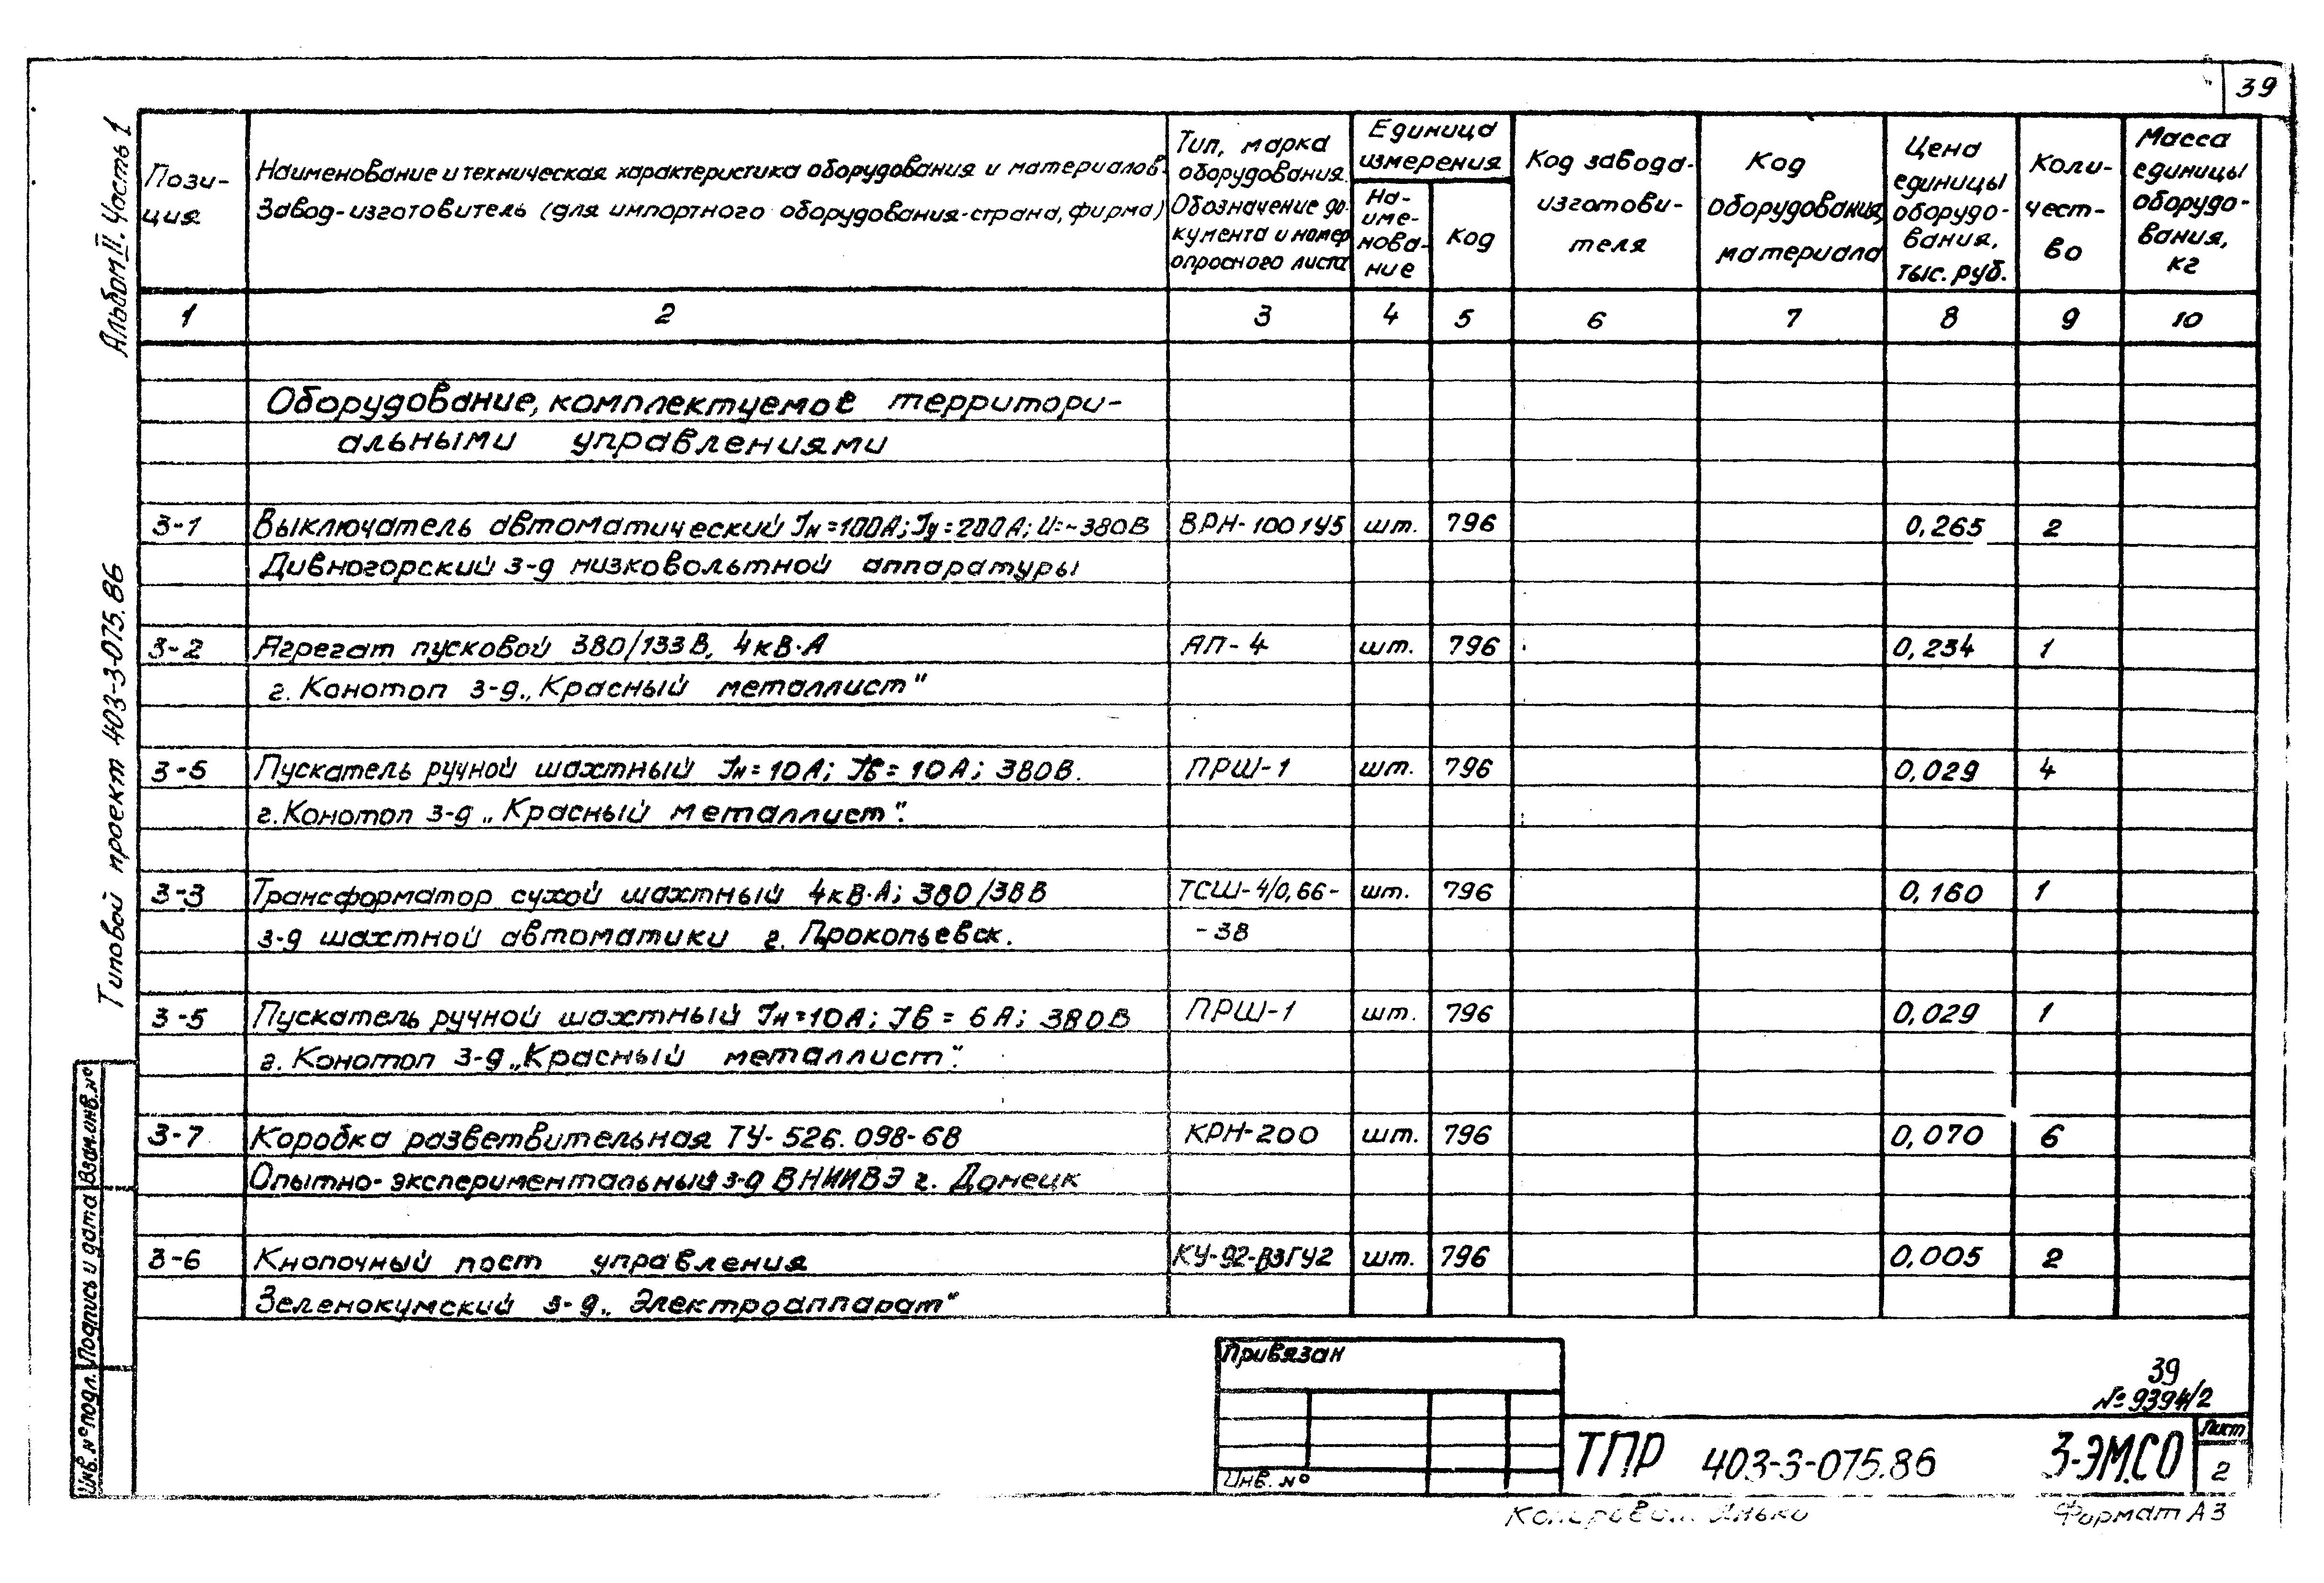 39
Альбом II. Часть 1
Типовой проект 403-3-075.86
Пози-
ция
Наименование и техническая характеристика оборудования и материалов.
Завод-изготовитель (для импортного оборудования-страна, фирма)
Тип, марка
оборудования.
Обозначение до-
кумента и номер
опросного листа
Единица
измерения
На-
име-
нова-
ние
Код
Код завода-
изготови-
теля
Код
оборудования,
материала
Цена
единицы
оборудо-
вания,
тыс. руб.
Коли-
чест-
во
Масса
единицы
оборудо-
вания,
кг
1 2 3 4 5 6 7 8 9 10
Оборудование, комплектуемое территори-
альными управлениями
3-1 Выключатель автоматический Iн=100А; Iу=200А; U=~380В ВРН-100 1У5 шт. 796 0,265 2
Дивногорский з-д низковольтной аппаратуры
3-2 Агрегат пусковой 380/133В, 4кВ·А АП-4 шт. 796 0,234 1
г. Конотоп з-д „Красный металлист"
3-5 Пускатель ручной шахтный Iн=10А; Iв=10А; 380В. ПРШ-1 шт. 796 0,029 4
г. Конотоп з-д „Красный металлист".
3-3 Трансформатор сухой шахтный 4кВ·А; 380/38В ТСШ-4/0,66- шт. 796 0,160 1
з-д шахтной автоматики г. Прокопьевск. -38
3-5 Пускатель ручной шахтный Iн=10А; Iв=6А; 380В ПРШ-1 шт. 796 0,029 1
г. Конотоп з-д „Красный металлист".
3-7 Коробка разветвительная ТУ-526.098-68 КРН-200 шт. 796 0,070 6
Опытно-экспериментальный з-д ВНИИВЭ г. Донецк
3-6 Кнопочный пост управления КУ-92-ВЗГУ2 шт. 796 0,005 2
Зеленокумский з-д „Электроаппарат"
Взам.инв.№
Подпись и дата
Инв.№подл.
Привязан
Инв. №
39
№ 9394/2
ТПР 403-3-075.86 3-ЭМ.СО
Лист
2
Формат А3